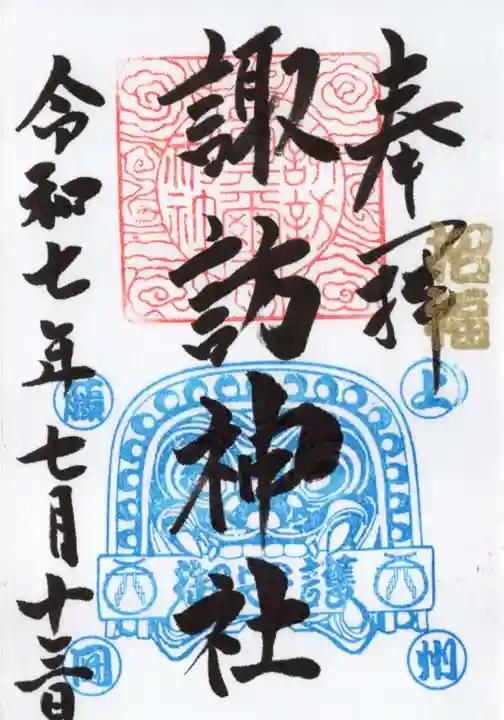 奉拝
招福
諏訪神社
令和七年七月十三日
上
州